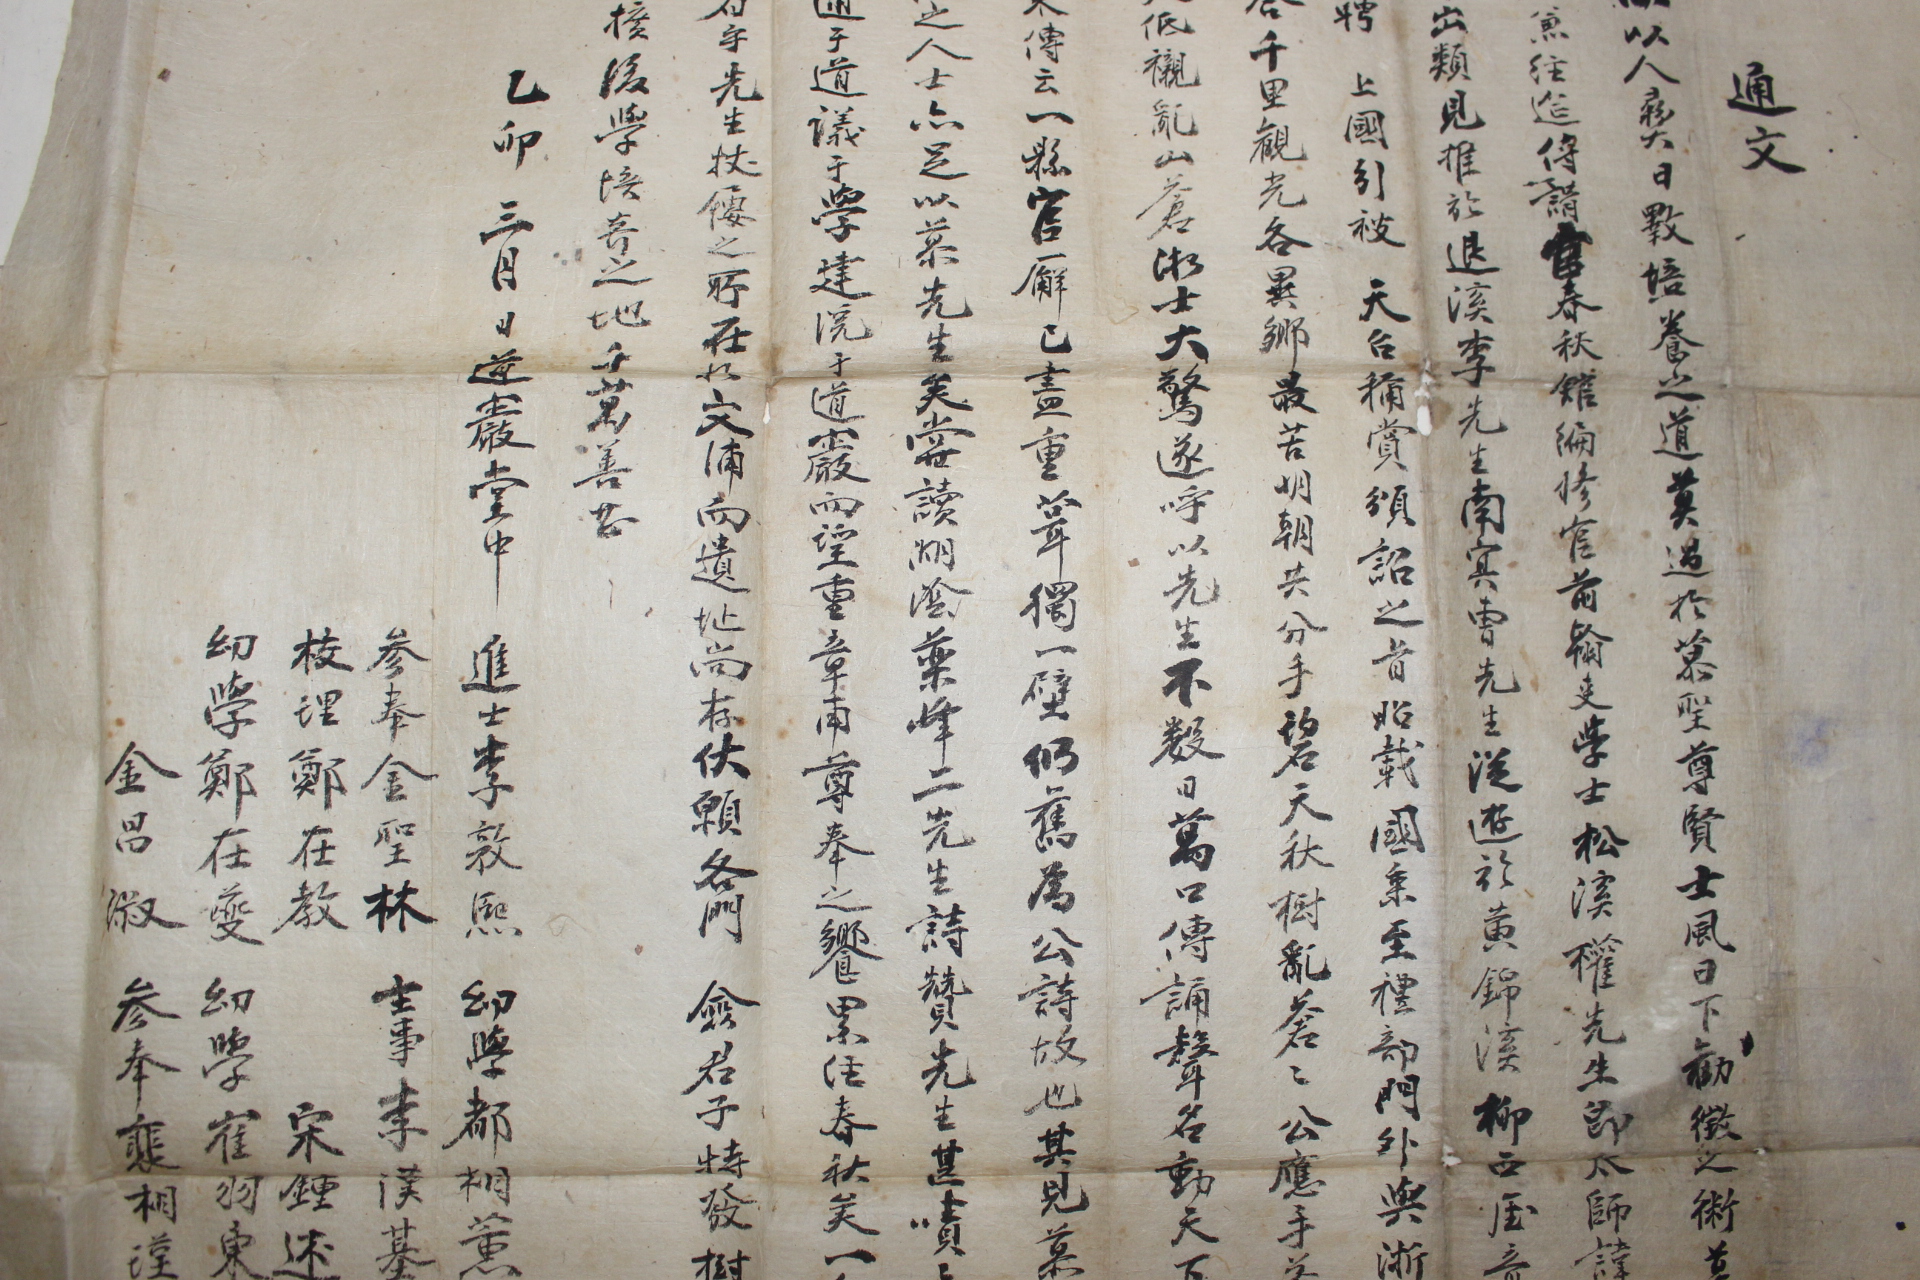 通文
以人斁日斁培養之道莫過於慕聖尊賢士風日下勸徵之術莫
兼經筵侍講官春秋館編修官前翰吏學士松溪權先生即太師諱
出類見推於退溪李先生南冥曹先生從遊於黃錦溪柳西厓
聘 上國引被 天台稱賞頒詔之旨昭載國乘至禮部門外與浙
千里觀光各異鄉最苦明朝共分手碧天秋樹亂蒼〻公應手
低襯亂山蒼浙士大驚遂呼以先生不數日萬口傳誦聲名動天下
傳云一縣官廨已盡重葺獨一壁仍舊爲公詩故也其見慕
之人士亦足以慕先生矣嘗讀湖陰藥峰二先生詩贊先生甚嘖
通于道議于學建院于道巖而望重章甫尊奉之饗累經春秋矣一
若乎先生杖屨之所在於文浦而遺址尚存伏願各門 僉君子特發
擴後學培養之地千萬善甚
乙卯 三月 日道巖堂中
進士李敦熙 幼學都相薰
參奉金聖林 主事李漢基
校理鄭在教 宋鍾述
幼學鄭在夔 幼學崔羽東
金昌淑 參奉裵相瑾